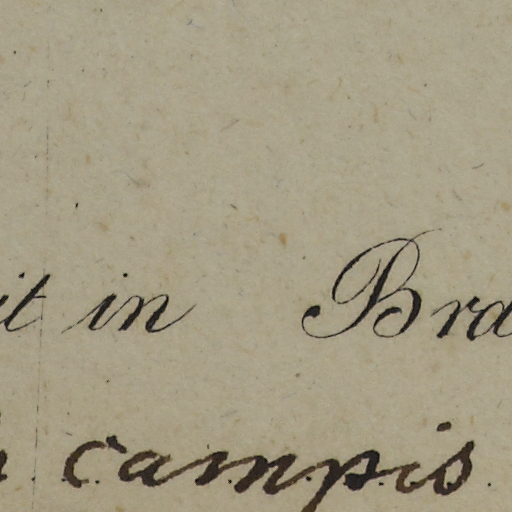 it in Bra
campis